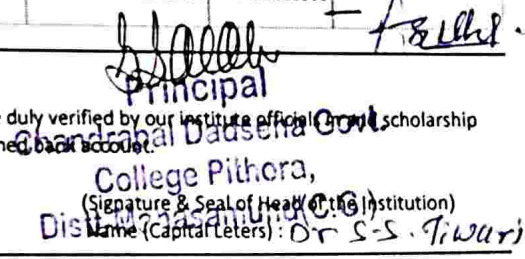 Principal
e duly verified by our institute officials scholarship
Chandrabal Dadsena Govt.
ned back account.
College Pithora,
(Signature & Seal of Head of the Institution)
Distt-Mahasamund (C.G.)
Name (Capital Leters) : Dr S-S. Tiwari